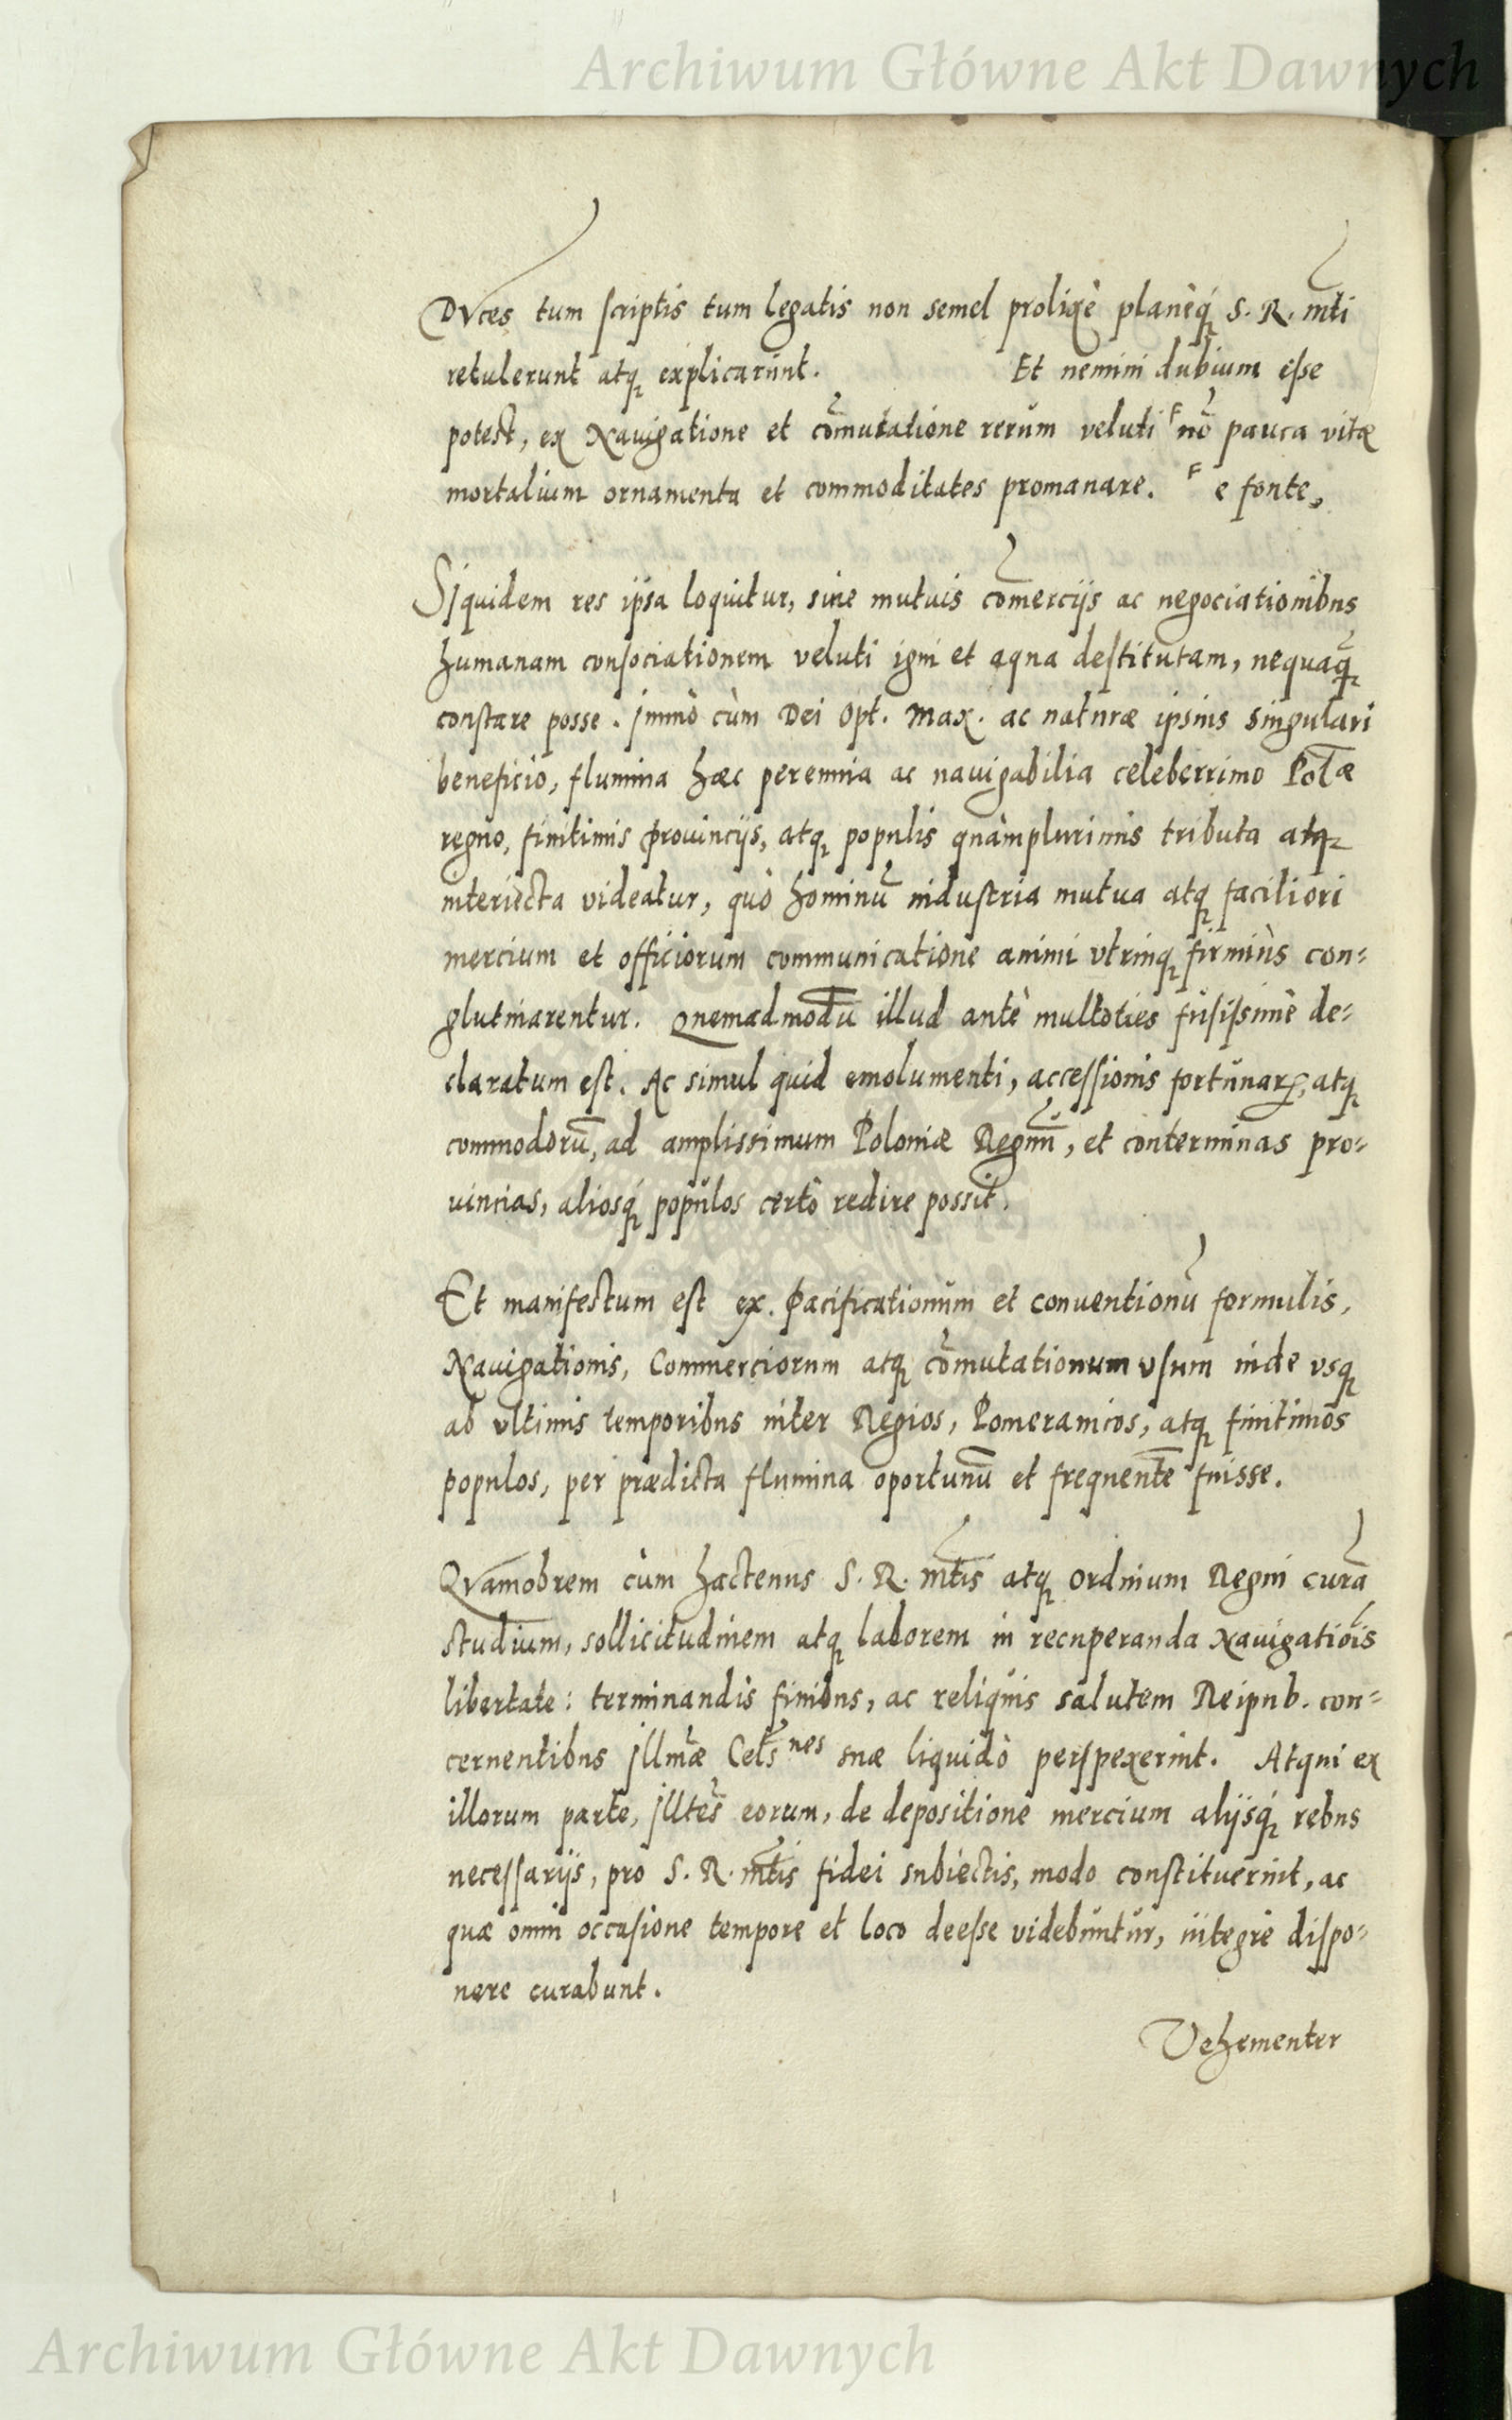 Archiwum Główne Akt Dawnych
DVces tum scriptis tum legatis non semel prolixè planèq́ꝫ S. R. mti
retulerunt atqꝫ explicarunt. Et nemini dubium esse
potest, ex Nauigatione et cōmutatione rerum veluti ᶠ nō pauca vitæ
mortalium ornamenta et commoditates promanare. ᶠ e fonte,
Sjquidem res ipsa loquitur, sine mutuis cōmercijs ac negociationibus
humanam consociationem veluti igni et aqua destitutam, nequaq̄ꝫ
constare posse. jmmò cùm Dei Opt. Max. ac naturæ ipsius singulari
beneficio, flumina hæc perennia ac nauigabilia celeberrimo Pol̄æ
regno, finitimis prouincijs, atqꝫ populis quàmplurimis tributa atqꝫ
interiecta videatur, quò hominū industria mutua atqꝫ faciliori
mercium et officiorum communicatione animi vtrinqꝫ firmiùs con-
glutinarentur. Quemadmodū illud antè multoties fusissimè de-
claratum est. Ac simul quid emolumenti, accessionis fortunarꝝ, atqꝫ
commodorū, ad amplissimum Poloniæ Regnū, et conterminas pro-
uincias, aliosq́ꝫ populos certò redire possit.
Et manifestum est ex. pacificationum et conuentionū formulis,
Nauigationis, Commerciorum atqꝫ cōmutationum vsum inde vsqꝫ
ab vltimis temporibus inter Regios, Pomeranicos, atqꝫ finitimos
populos, per prædicta flumina oportunū et frequentē fuisse.
QVamobrem cùm hactenus S. R. mtis atqꝫ ordinum Regni curā
studium, sollicitudinem atqꝫ laborem in recuperanda Nauigatiōis
libertate: terminandis finibus, ac reliquis salutem Reipub. con-
cernentibus jllmæ Cels nes suæ liquidò perspexerint. Atqui ex
illorum parte, jlltes eorum, de depositione mercium alijsq́ꝫ rebus
necessarijs, pro S. R. mtis fidei subiectis, modo constituerint, ac
quæ omni occasione tempore et loco deesse videbuntur, integrè dispo-
nere curabunt.
Vehementer
Archiwum Główne Akt Dawnych